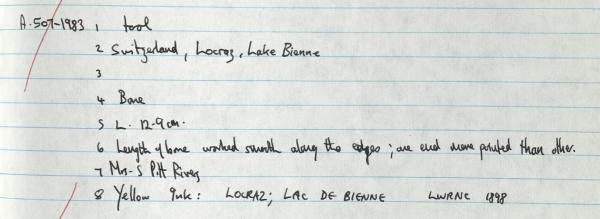 A.507-1983 1 tool
2 Switzerland, Locraz, Lake Bienne
3
4 Bone
5 L. 12.9cm.
6 Length of bone worked smooth along the edges; one end more pointed than other.
7 Mrs S Pitt Rivers
8 Yellow ink: LOCRAZ; LAC DE BIENNE LWRNC 1898